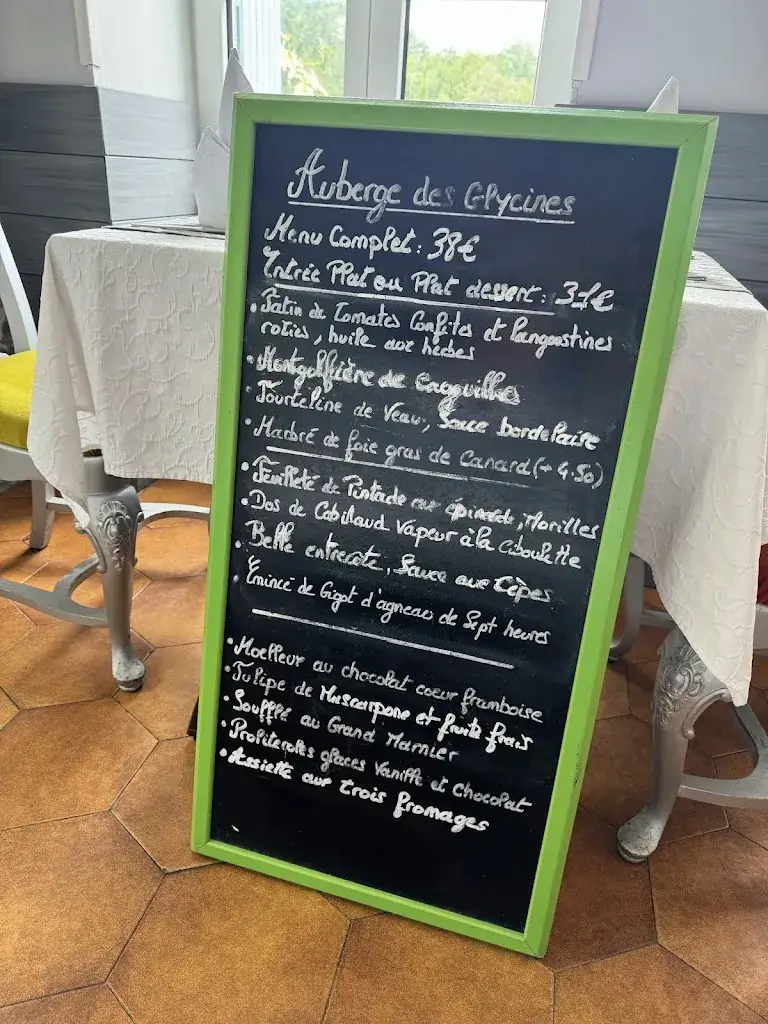 Auberge des Glycines
Menu Complet : 38€
Entrée Plat ou Plat dessert : 31€
• Tatin de Tomates Confites et Langoustines
roties, huile aux herbes
• Montgolfière de Cagouilles
• Tourteline de Veau, Sauce bordelaise
• Marbré de foie gras de Canard (+ 4.50)
• Feuilleté de Pintade aux épinards, Morilles
• Dos de Cabillaud Vapeur à la Ciboulette
• Belle entrecote, Sauce aux Cèpes
• Emincé de Gigot d'agneau de Sept heures
• Moelleux au chocolat coeur framboise
• Tulipe de Mascarpone et fruits frais
• Soufflé au Grand Marnier
• Profiteroles glaces Vanille et Chocolat
• Assiette aux trois fromages